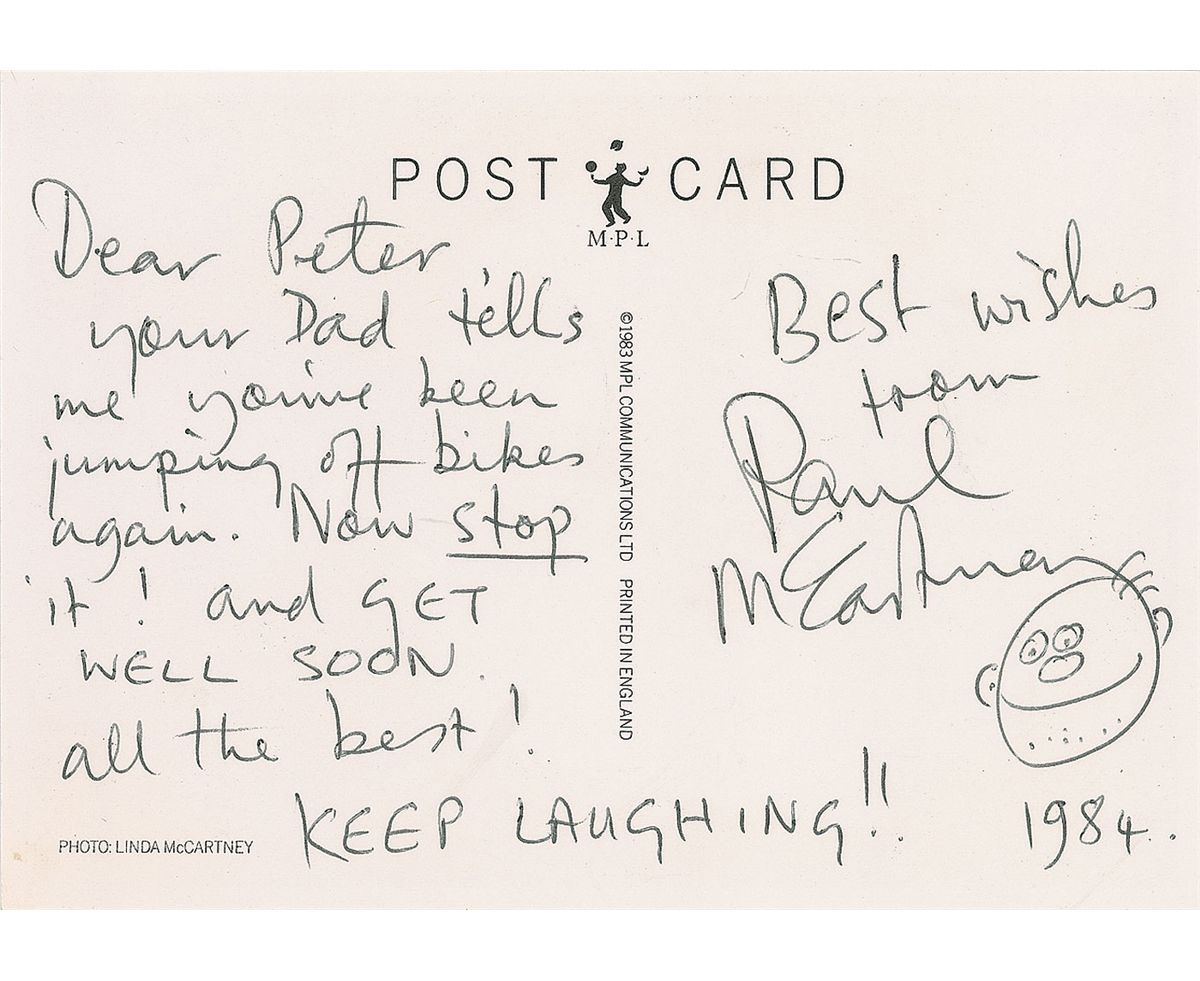 POST CARD
M·P·L
Dear Peter
your Dad tells
me you've been
jumping off bikes
again. Now stop
it! and GET
WELL SOON.
all the best!
KEEP LAUGHING!!
Best wishes
from
Paul
McCartney
1984.
©1983 MPL COMMUNICATIONS LTD PRINTED IN ENGLAND
PHOTO: LINDA McCARTNEY